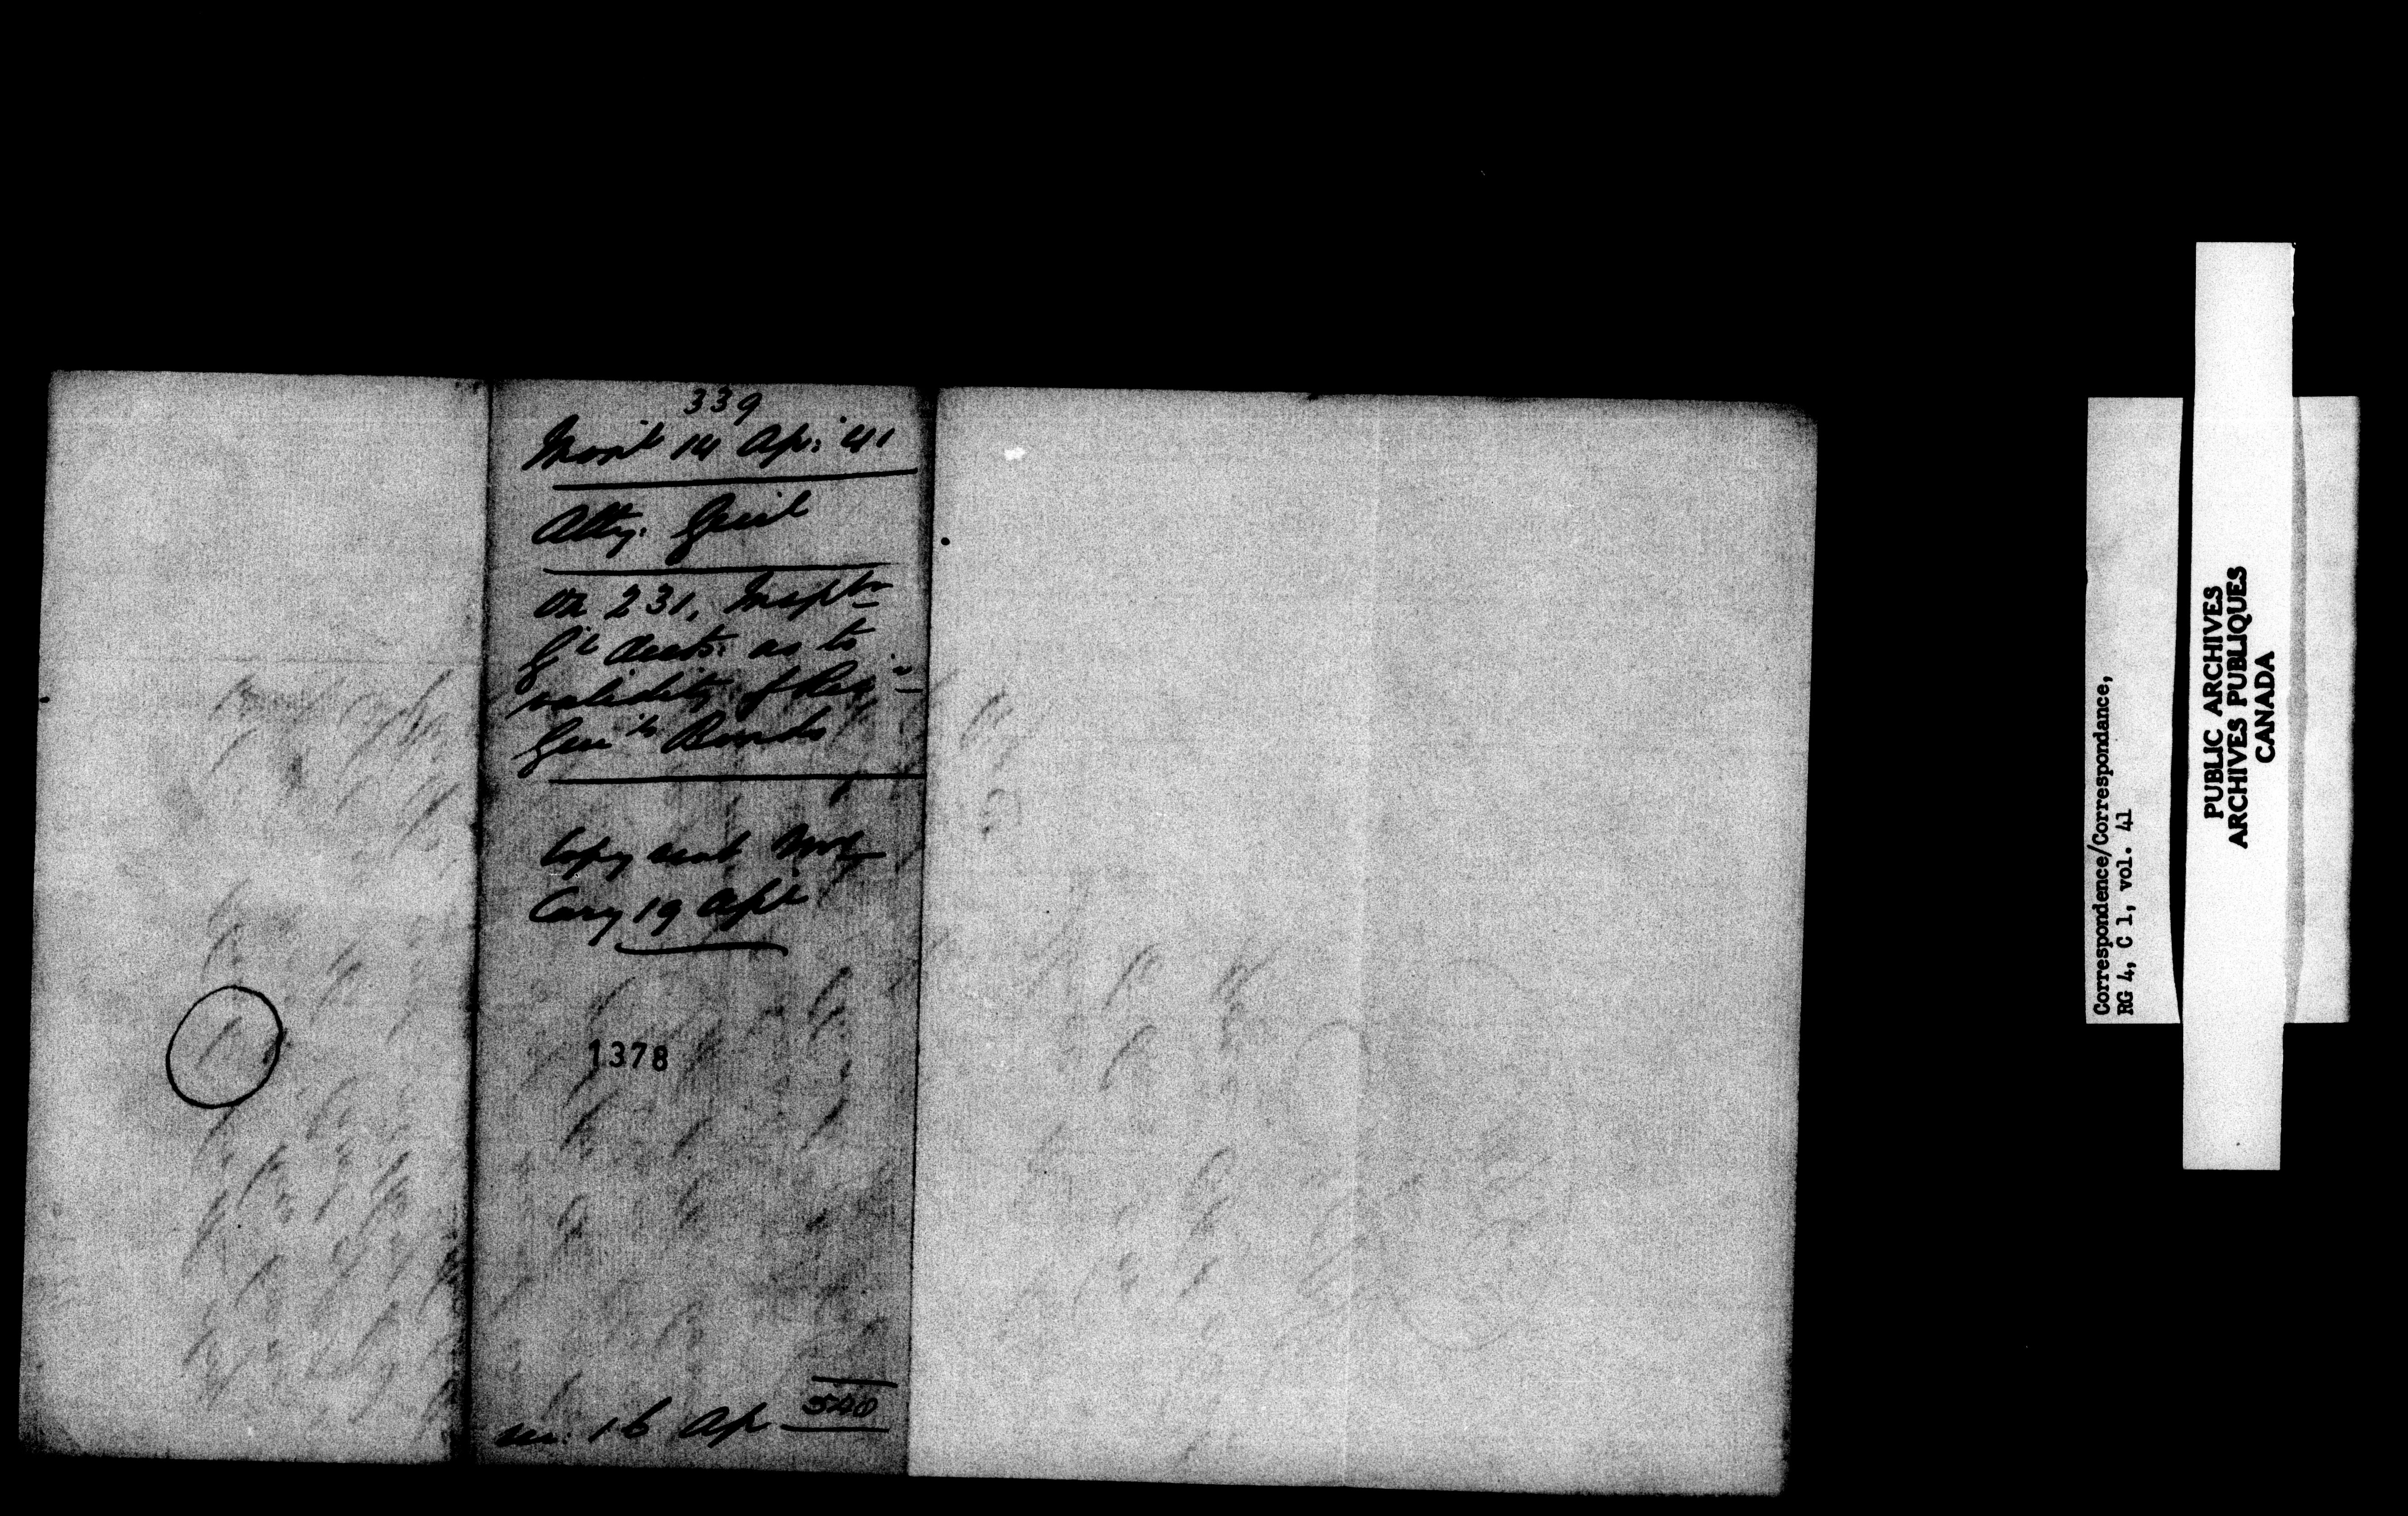 339
Mont 14 Ap: 41
Atty. Genl
On 231, Inspr
Gl Accts: as to
validity of Recr
Gen'ls Bonds
Copy sent Mr
Cary 19 Apl
1378
rec: 16 Ap 540
Correspondence/Correspondance,
RG 4, C 1, vol. 41
PUBLIC ARCHIVES
ARCHIVES PUBLIQUES
CANADA